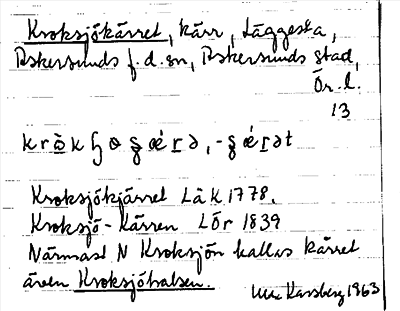 Kroksjökärret, kärr, Läggesta,
Askersunds f.d. sn, Askersunds stad,
Ör. l.
13
Kroksjökjärret LäK 1778.
Kroksjö-Kärren LÖr 1839
Närmast N Kroksjön kallas kärret
även Kroksjöhalsen.
Karsberg 1963